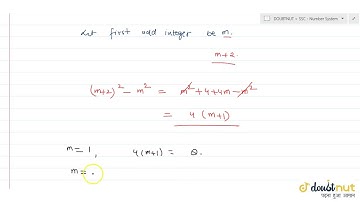 DOUBTNUT > SSC : Number System
Let first odd integer be m.
m+2.
(m+2)² - m² = m² + 4 + 4m - m²
= 4 (m+1)
m = 1, 4 (m+1) = 8.
m = .
doubtnut
पढ़ना हुआ आसान